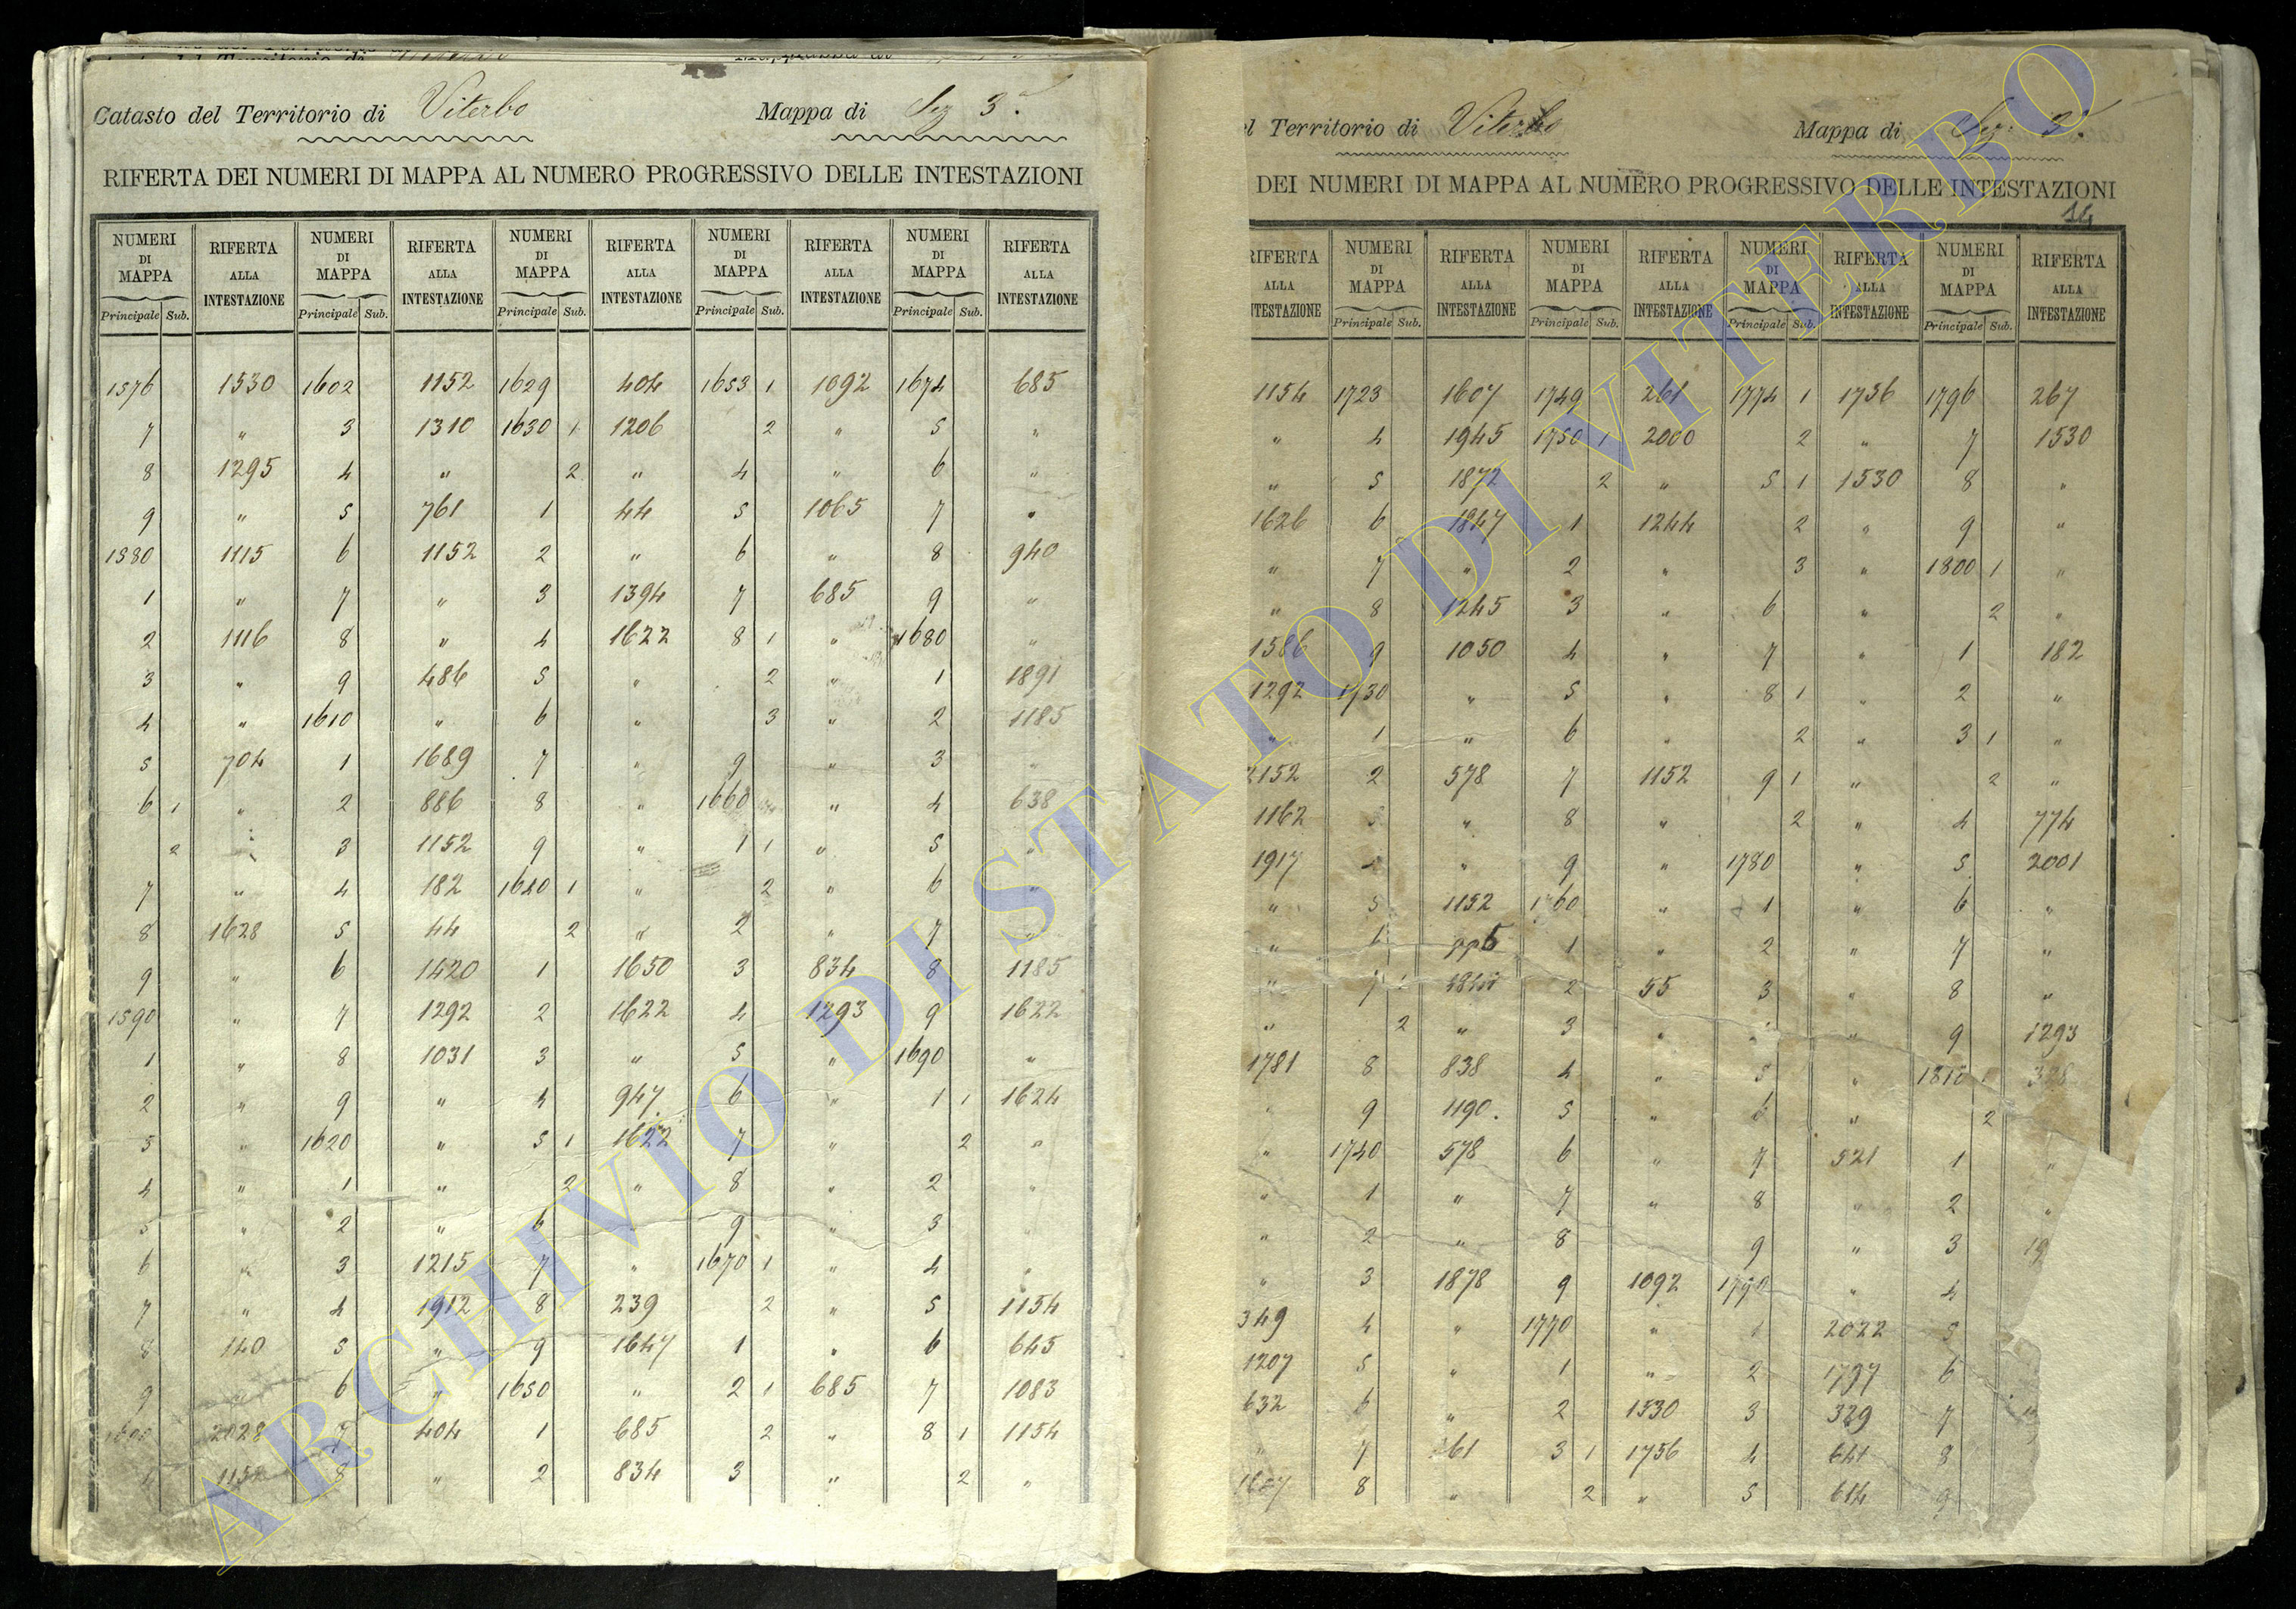 Catasto del Territorio di Viterbo Mappa di Sez 3.a
RIFERTA DEI NUMERI DI MAPPA AL NUMERO PROGRESSIVO DELLE INTESTAZIONI
NUMERI DI MAPPA RIFERTA ALLA INTESTAZIONE NUMERI DI MAPPA RIFERTA ALLA INTESTAZIONE NUMERI DI MAPPA RIFERTA ALLA INTESTAZIONE NUMERI DI MAPPA RIFERTA ALLA INTESTAZIONE NUMERI DI MAPPA RIFERTA ALLA INTESTAZIONE
Principale Sub. Principale Sub. Principale Sub. Principale Sub. Principale Sub.
1576 1530 1602 1152 1629 404 1653 1 1092 1674 685
7 " 3 1310 1630 1 1206 2 " 5 "
8 1295 4 " 2 " 4 " 6 "
9 " 5 761 1 44 5 1065 7 "
1580 1115 6 1152 2 " 6 " 8 940
1 " 7 " 3 1394 7 685 9 "
2 1116 8 " 4 1622 8 1 " 1680 "
3 " 9 486 5 " 2 " 1 1891
4 " 1610 " 6 " 3 " 2 1185
5 704 1 1689 7 " 9 " 3 "
6 1 " 2 886 8 " 1660 " 4 638
2 " 3 1152 9 " 1 1 " 5 "
7 " 4 182 1640 1 " 2 " 6 "
8 1628 5 44 2 " 2 " 7 "
9 " 6 1420 1 1650 3 834 8 1185
1590 " 7 1292 2 1622 4 1293 9 1622
1 " 8 1031 3 " 5 " 1690 "
2 " 9 " 4 947 6 " 1 1 1624
3 " 1620 " 5 1 1622 7 " 2 "
4 " 1 " 2 " 8 " 2 "
5 " 2 " 6 " 9 " 3 "
6 " 3 1215 7 " 1670 1 " 4 "
7 " 4 1912 8 239 2 " 5 1154
8 140 5 " 9 1647 1 " 6 645
9 6 " 1650 " 2 1 685 7 1083
1600 2028 7 404 1 685 2 " 8 1 1154
1 8 " 2 834 3 " 2 "
el Territorio di Viterbo Mappa di Sez. 3.a
DEI NUMERI DI MAPPA AL NUMERO PROGRESSIVO DELLE INTESTAZIONI
14
RIFERTA ALLA INTESTAZIONE NUMERI DI MAPPA RIFERTA ALLA INTESTAZIONE NUMERI DI MAPPA RIFERTA ALLA INTESTAZIONE NUMERI DI MAPPA RIFERTA ALLA INTESTAZIONE NUMERI DI MAPPA RIFERTA ALLA INTESTAZIONE
Principale Sub. Principale Sub. Principale Sub. Principale Sub.
1154 1723 1607 1749 261 1774 1 1756 1796 267
" 4 1945 1750 1 2000 2 " 7 1530
" 5 1872 2 " 5 1 1530 8 "
1626 6 1847 1 1244 2 " 9 "
" 7 " 2 " 3 " 1800 1 "
" 8 1245 3 " 6 " 2 "
1586 9 1050 4 " 7 " 1 182
1292 1730 " 5 " 8 1 " 2 "
" 1 " 6 " 2 " 3 1 "
2152 2 578 7 1152 9 1 " 2 "
1162 " 8 " 2 " 4 774
1917 " 9 " 1780 " 5 2001
" 5 1152 1760 " 1 " 6 "
" 6 1 " 2 " 7 "
" 7 2 55 3 " 8 "
" 2 " 3 " " 9 1293
1781 8 838 4 " 5 " 1810
" 9 1190 5 " 6 " 2
" 1740 578 6 " 7 521 1 "
" 1 " 7 " 8 " 2 "
" 2 " 8 9 " 3 19
" 3 1878 9 1092 1790 " 4
349 4 " 1770 " 1 2022 5
1207 5 " 1 " 2 1797 6
632 6 " 2 1530 3 329 7
" 7 61 3 1 1756 4 641 8
8 " 2 " 5 614 9
ARCHIVIO DI STATO DI VITERBO